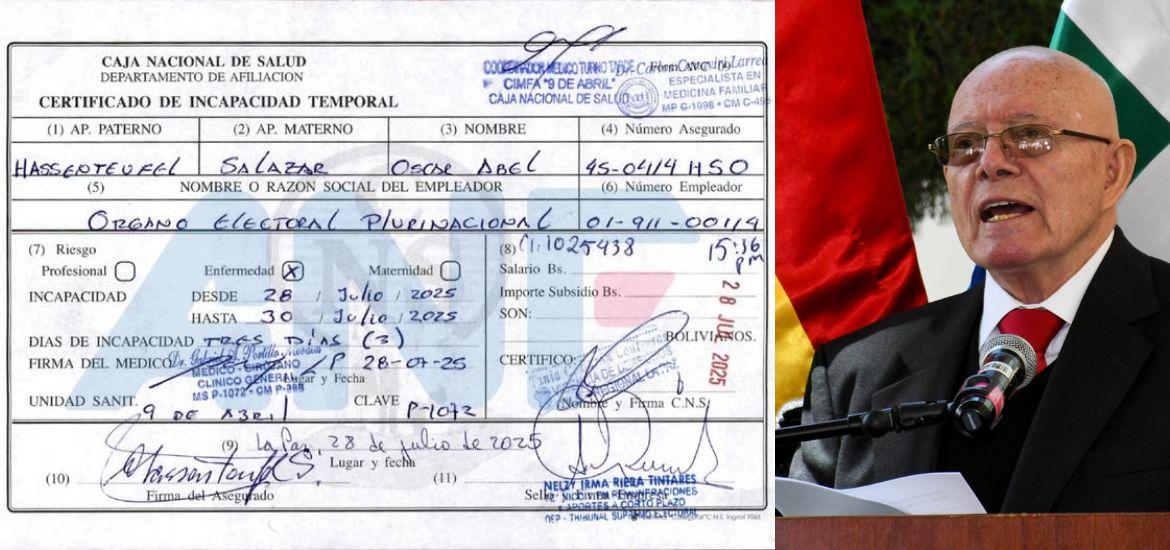 CAJA NACIONAL DE SALUD
DEPARTAMENTO DE AFILIACION
CERTIFICADO DE INCAPACIDAD TEMPORAL
COORDINADOR MEDICO TURNO TARDE
CIMFA "9 DE ABRIL"
CAJA NACIONAL DE SALUD
Form. AVC
ESPECIALISTA EN
MEDICINA FAMILIAR
(1) AP. PATERNO (2) AP. MATERNO (3) NOMBRE (4) Número Asegurado
HASSENTEUFEL SALAZAR OSCAR ABEL 45-0414 HSO
(5) NOMBRE O RAZON SOCIAL DEL EMPLEADOR (6) Número Empleador
ORGANO ELECTORAL PLURINACIONAL 01-911-00114
ANF
(7) Riesgo
Profesional Enfermedad X Maternidad
INCAPACIDAD DESDE 28 / Julio / 2025
HASTA 30 / Julio / 2025
DIAS DE INCAPACIDAD TRES DÍAS (3)
FIRMA DEL MEDICO L/P 28-07-25
Lugar y Fecha
MEDICO - CIRUJANO
CLINICO GENERAL
UNIDAD SANIT. 9 DE ABRIL CLAVE P-1072
(8) C.I. 1025438 15:36 pm
Salario Bs.
Importe Subsidio Bs.
SON:
BOLIVIANOS.
28 JUL 2025
CERTIFICO:
Nombre y Firma C.N.S.
(9) La Paz, 28 de julio de 2025
Lugar y fecha
(10) Firma del Asegurado
(11)
NELZY IRMA RIERA TINTARES
Y APORTES A CORTO PLAZO
OEP - TRIBUNAL SUPREMO ELECTORAL